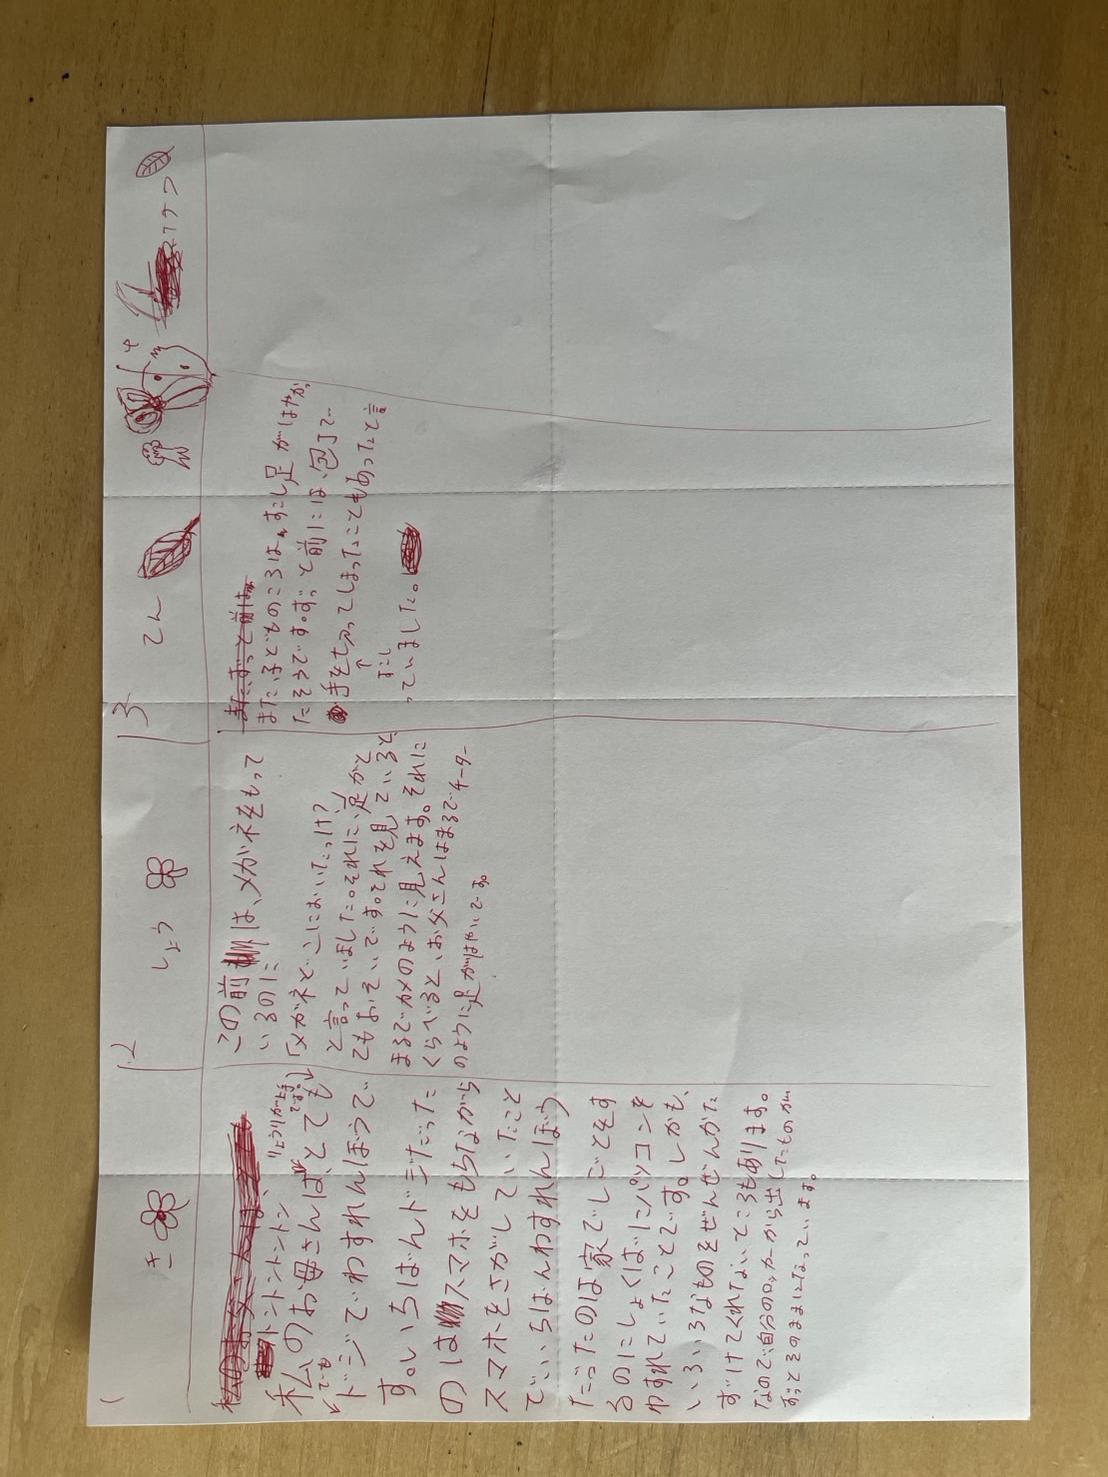 1 き
トントントントン、
りょうりが上手
です。
私のお母さんは、とても
でも
ドジでわすれんぼうで
す。いちばんドジだった
のはスマホをもちながら
スマホをさがしていたこと
で、いちばんわすれんぼう
だったのは家でしごとをす
るのにしょくばにパソコンを
わすれていたことです。しかも、
いろいろなものをぜんぜんかた
ずけてくれないところもあります。
なので、自分のロッカーから出したものが、
ずっとそのままになっています。
2 しょう
この前は、メガネをもって
いるのに
「メガネどこにおいたっけ?」
と言っていました。それに、足がと
てもおそいです。それを見ていると
まるでカメのように見えます。それに
くらべると、お父さんはまるでチーター
のように足がはやいです。
3 てん
またずっと前は
また、子どものころは、すこし足がはやかっ
たそうです。ずっと前には、包丁で
手をちってしまったこともあったと言
すこし
っていました。
4 ケツ